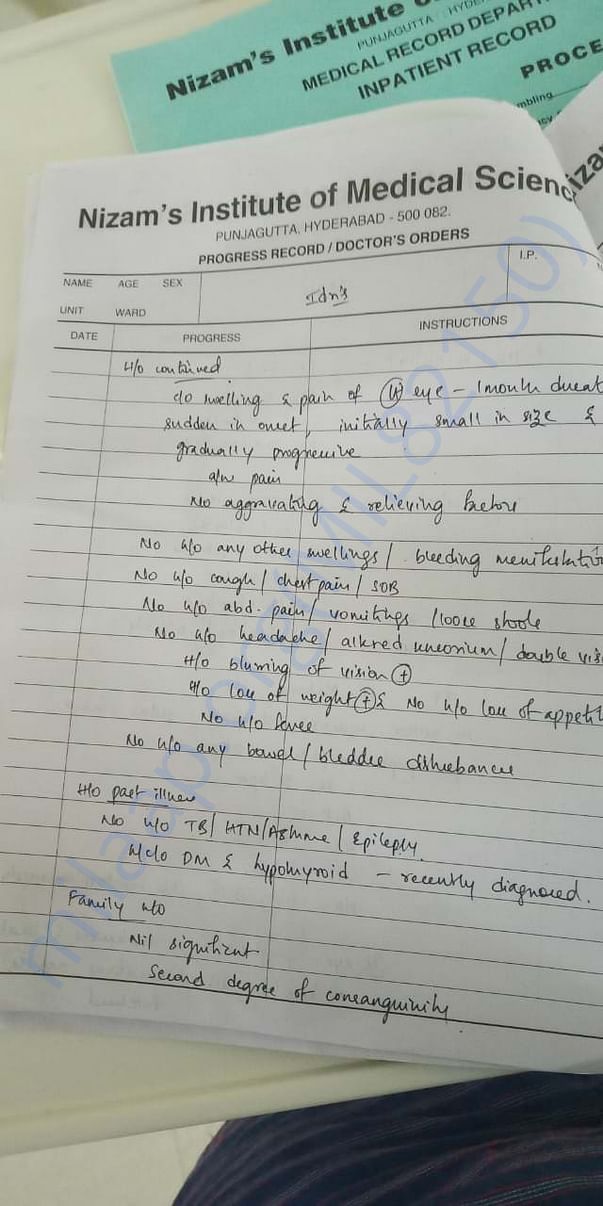 Nizam's Institute
PUNJAGUTTA, HYDE
MEDICAL RECORD DEPART
INPATIENT RECORD
PROCE
mbling
Nizam's Institute of Medical Scienc
PUNJAGUTTA, HYDERABAD - 500 082.
PROGRESS RECORD / DOCTOR'S ORDERS
NAME AGE SEX
I.P.
UNIT WARD
DATE PROGRESS INSTRUCTIONS
H/o continued
c/o swelling & pain of eye - 1 month durat
sudden in onset, initially small in size &
gradually progressive
a/w pain
No aggravating & relieving factors
No h/o any other swellings / bleeding manifestatio
No h/o cough / chest pain / SOB
No h/o abd. pain / vomitings / loose stools
No h/o headache / altered sensorium / double visi
H/o blurring of vision (+)
H/o loss of weight (+) & No h/o loss of appetit
No h/o fever
No h/o any bowel / bladder disturbances
H/o past illness
No h/o TB / HTN / Asthma / Epilepsy
k/c/o DM & hypothyroid - recently diagnosed.
Family h/o
Nil significant
Second degree of consanguinity
milaap.org(MIL82150)